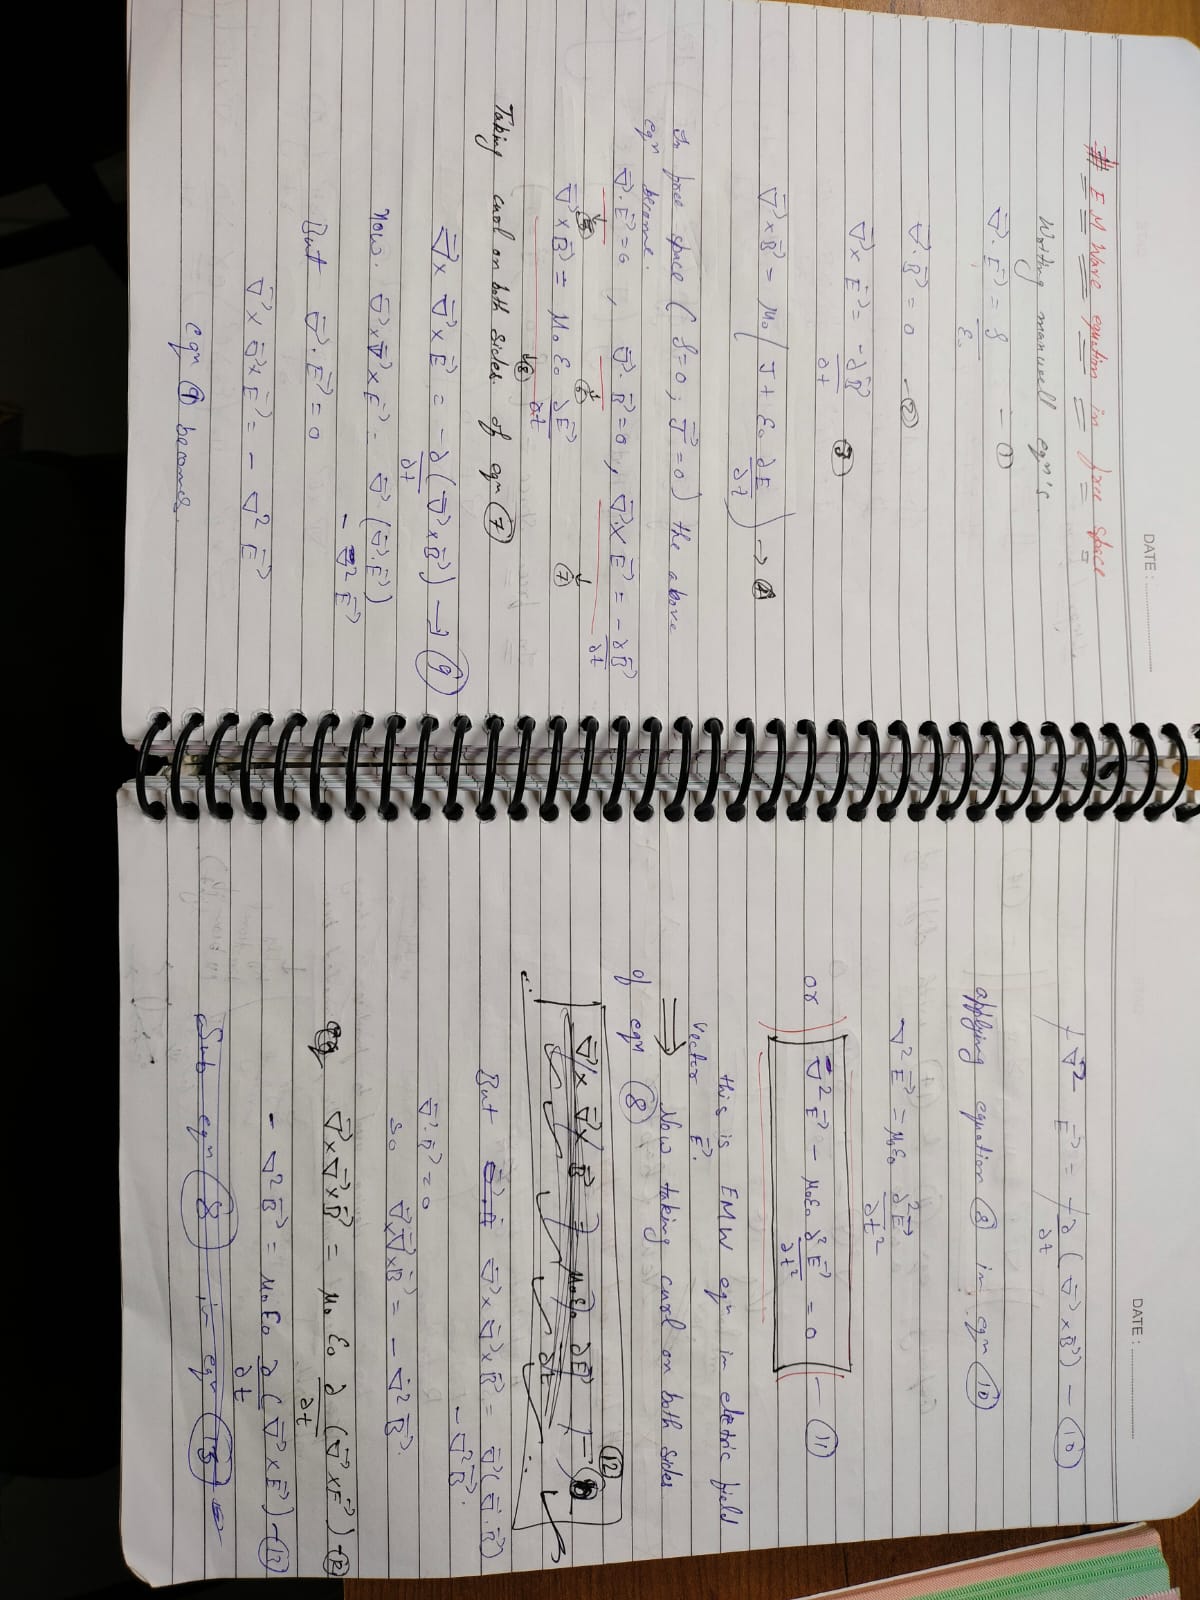 DATE :
# EM Wave equation in free space
Writing manwell eqn's.
∇⃗.E⃗ = ρ/ε₀ - ①
∇⃗.B⃗ = 0 - ②
∇⃗ x E⃗ = -∂B⃗/∂t ③
∇⃗ x B⃗ = μ₀ ( J + ε₀ ∂E/∂t ) → ④
In free space ( ρ=0, J⃗=0 ) the above
eqn become.
∇⃗.E⃗ = 0 , ∇⃗.B⃗ = 0, ∇⃗ x E⃗ = -∂B⃗/∂t
↓⑤ ↓⑥ ↓⑦
∇⃗ x B⃗ = μ₀ ε₀ ∂E⃗/∂t
↓⑧
Taking curl on both sides. of eqn ⑦
∇⃗ x ∇⃗ x E⃗ = -∂/∂t (∇⃗ x B⃗) → ⑨
Now. ∇⃗ x ∇⃗ x E⃗ = ∇⃗ (∇⃗.E⃗)
- ∇² E⃗
But ∇⃗.E⃗ = 0
∇⃗ x ∇⃗ x E⃗ = - ∇² E⃗
eqn ⑨ becomes.
DATE :
+∇² E⃗ = +∂/∂t (∇⃗ x B⃗) - ⑩
applying equation ⑧ in eqn ⑩
∇² E⃗ = μ₀ε₀ ∂²E⃗/∂t²
or ∇² E⃗ - μ₀ε₀ ∂²E⃗/∂t² = 0 - ⑪
this is EMW eqn in eletric field
vector E⃗.
⇒ Now taking curl on both sides
of eqn ⑧
∇⃗ x ∇⃗ x B⃗ = μ₀ε₀ ∂E⃗/∂t - ⑫
But ∇⃗ x ∇⃗ x B⃗ = ∇⃗(∇⃗.B⃗)
- ∇² B⃗.
∇⃗.B⃗ = 0
so ∇⃗x∇⃗xB⃗ = - ∇² B⃗.
∇⃗x∇⃗xB⃗ = μ₀ ε₀ ∂/∂t (∇⃗xE⃗) - ⑫
- ∇² B⃗ = μ₀ ε₀ ∂/∂t (∇⃗ x E⃗) - ⑬
Sub eqn ⑧ in eqn ⑬